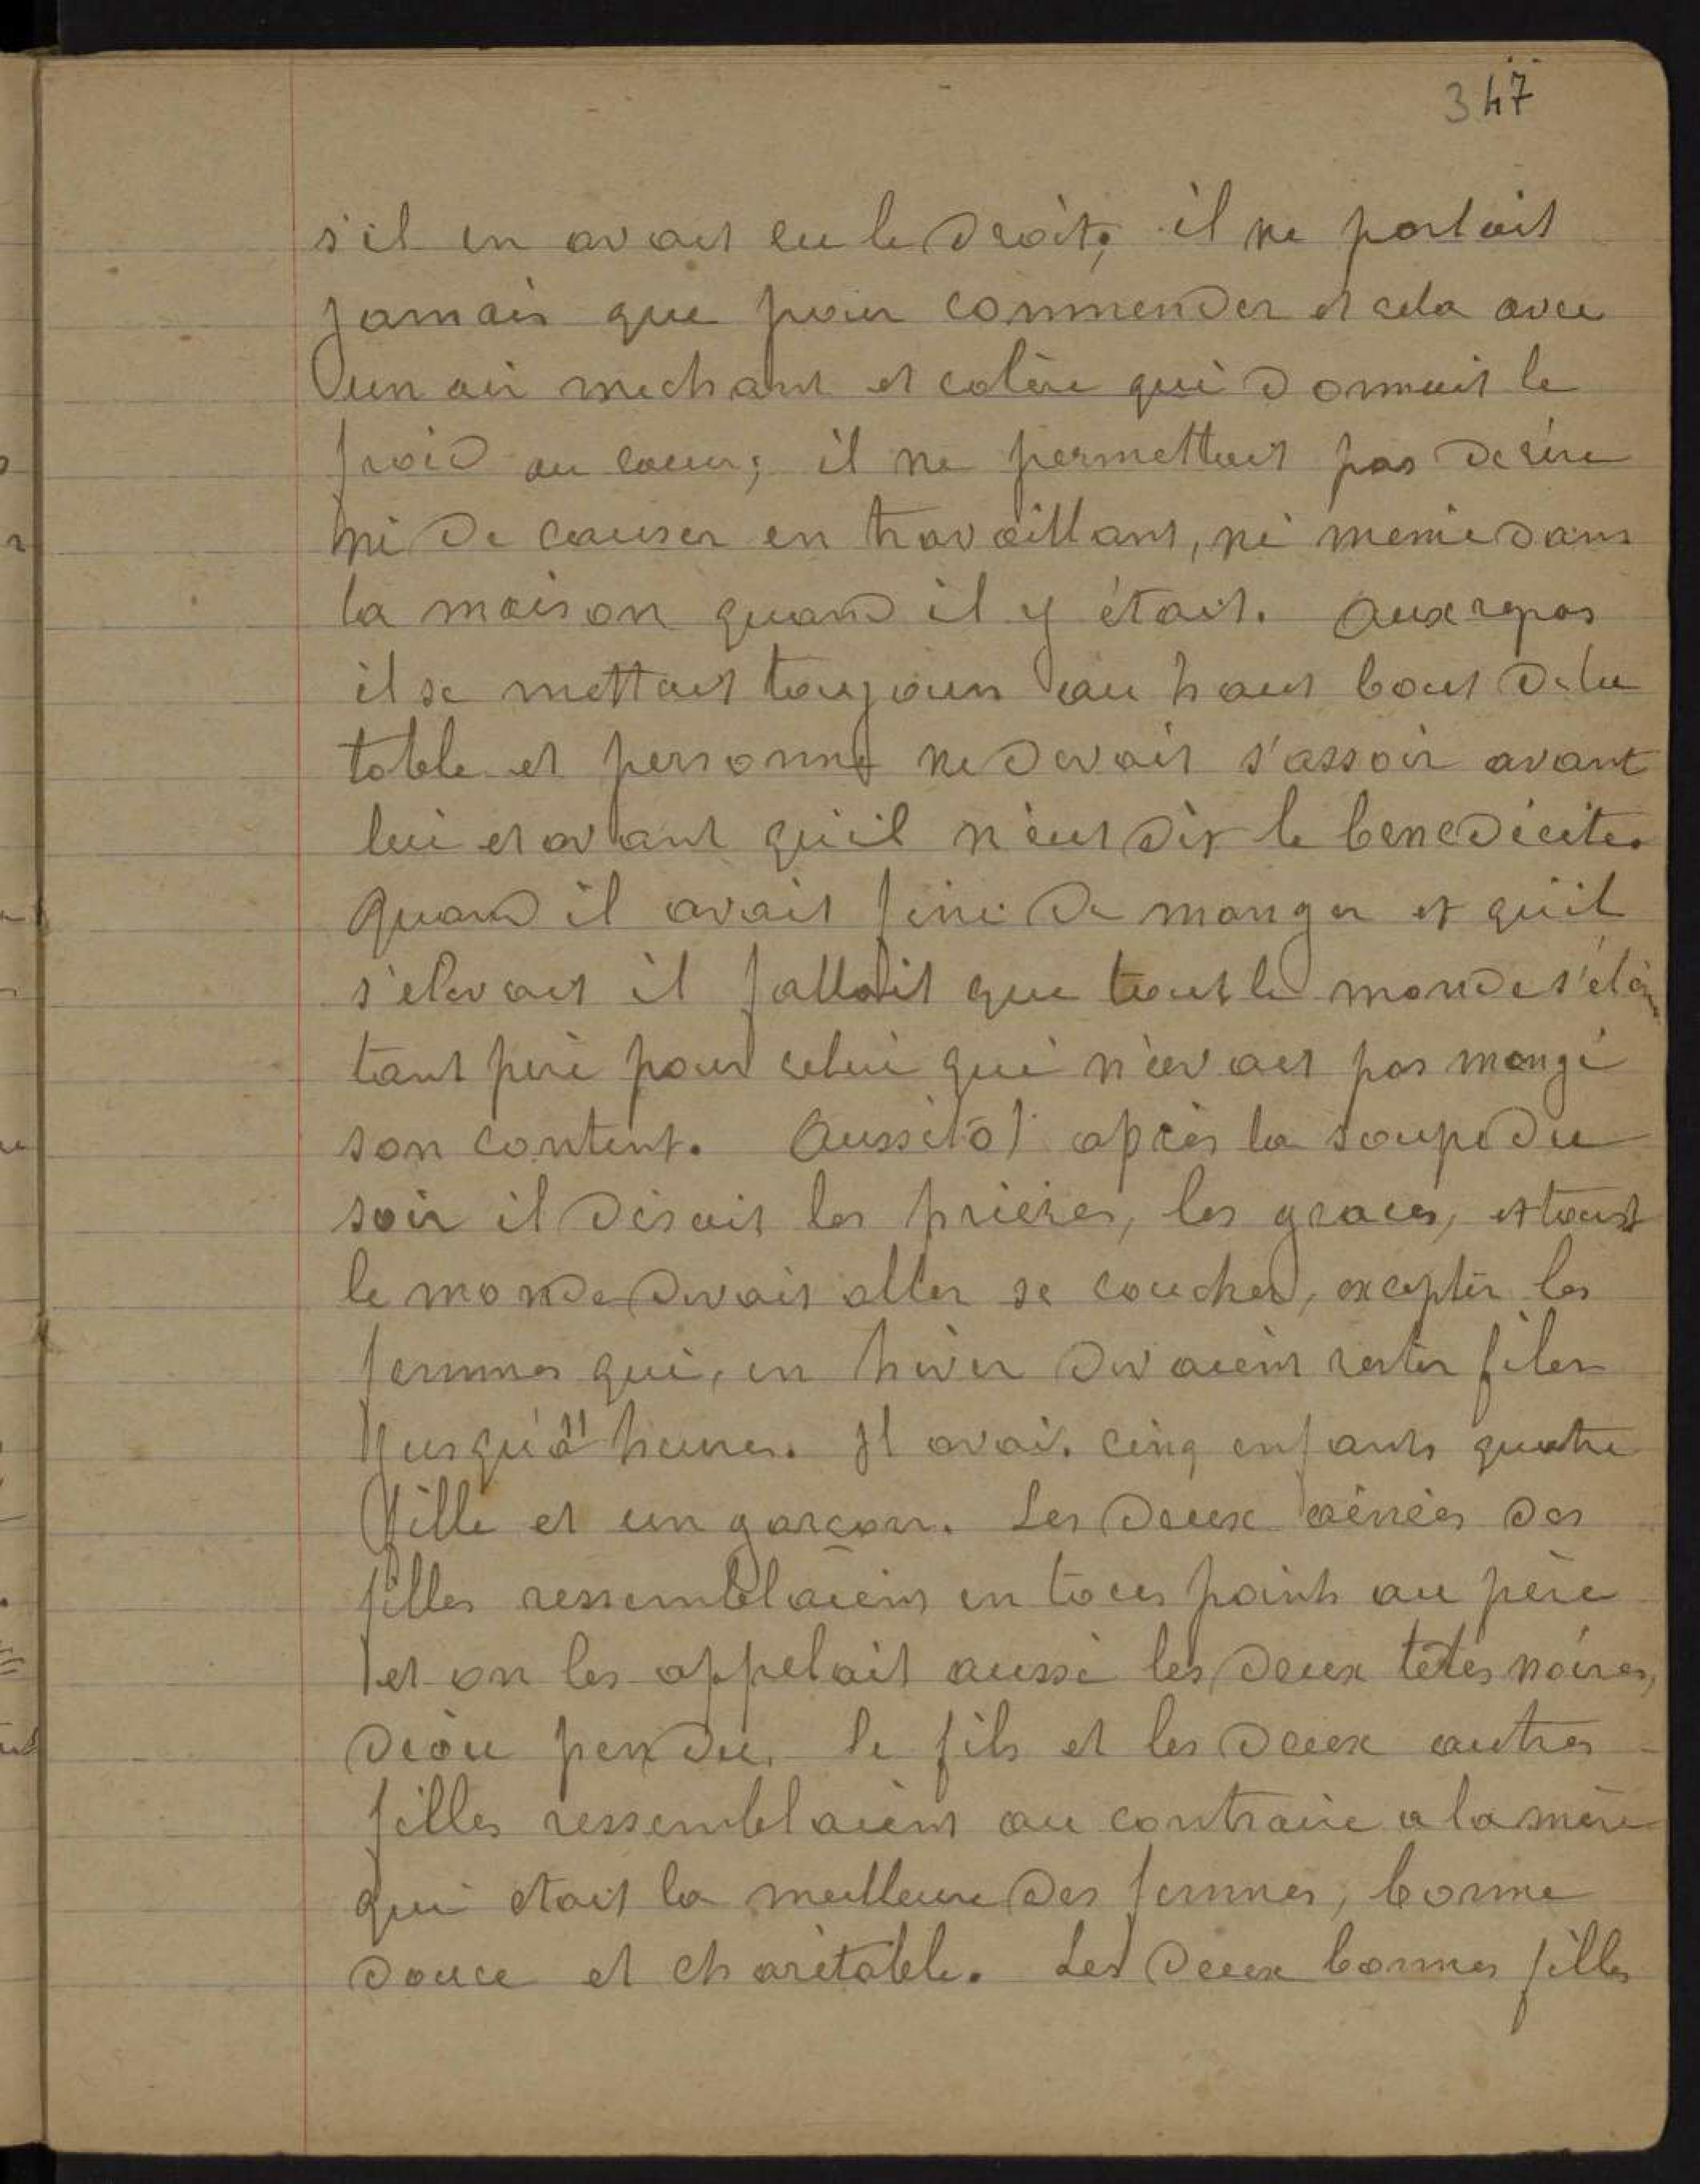 347
s'il en avait eu le droit; il ne parlait
jamais que pour commender et cela avec
un air mechant et colère qui donnait le
froid au coeur; il ne permettait pas de rire
ni de causer en travaillant, ni meme dans
la maison quand il y était. Aux repas
il se mettait toujours au haut bout de la
table et personne ne devait s'assoir avant
lui et avant qu'il n'eut dit le benedicite.
Quand il avait fini de manger et qu'il
s'elevait il fallait que tout le monde s'élève
tant pire pour celui qui n'avait pas mangé
son content. Aussitôt après la soupe du
soir il disait les prières, les graces, et tout
le monde devait aller se coucher, excepter les
femmes qui, en hiver devaient rester filer
jusqu'à 11 heures. Il avait cinq enfants quatre
fille et un garçon. Les deux ainées des
filles ressemblaient en tous points au père
et on les appelait aussi les deux tetes noires,
diou pen du. le fils et les deux autres
filles ressemblaient au contraire a la mère
qui etait la meilleure des femmes, bonne
douce et charitable. Les deux bonnes filles